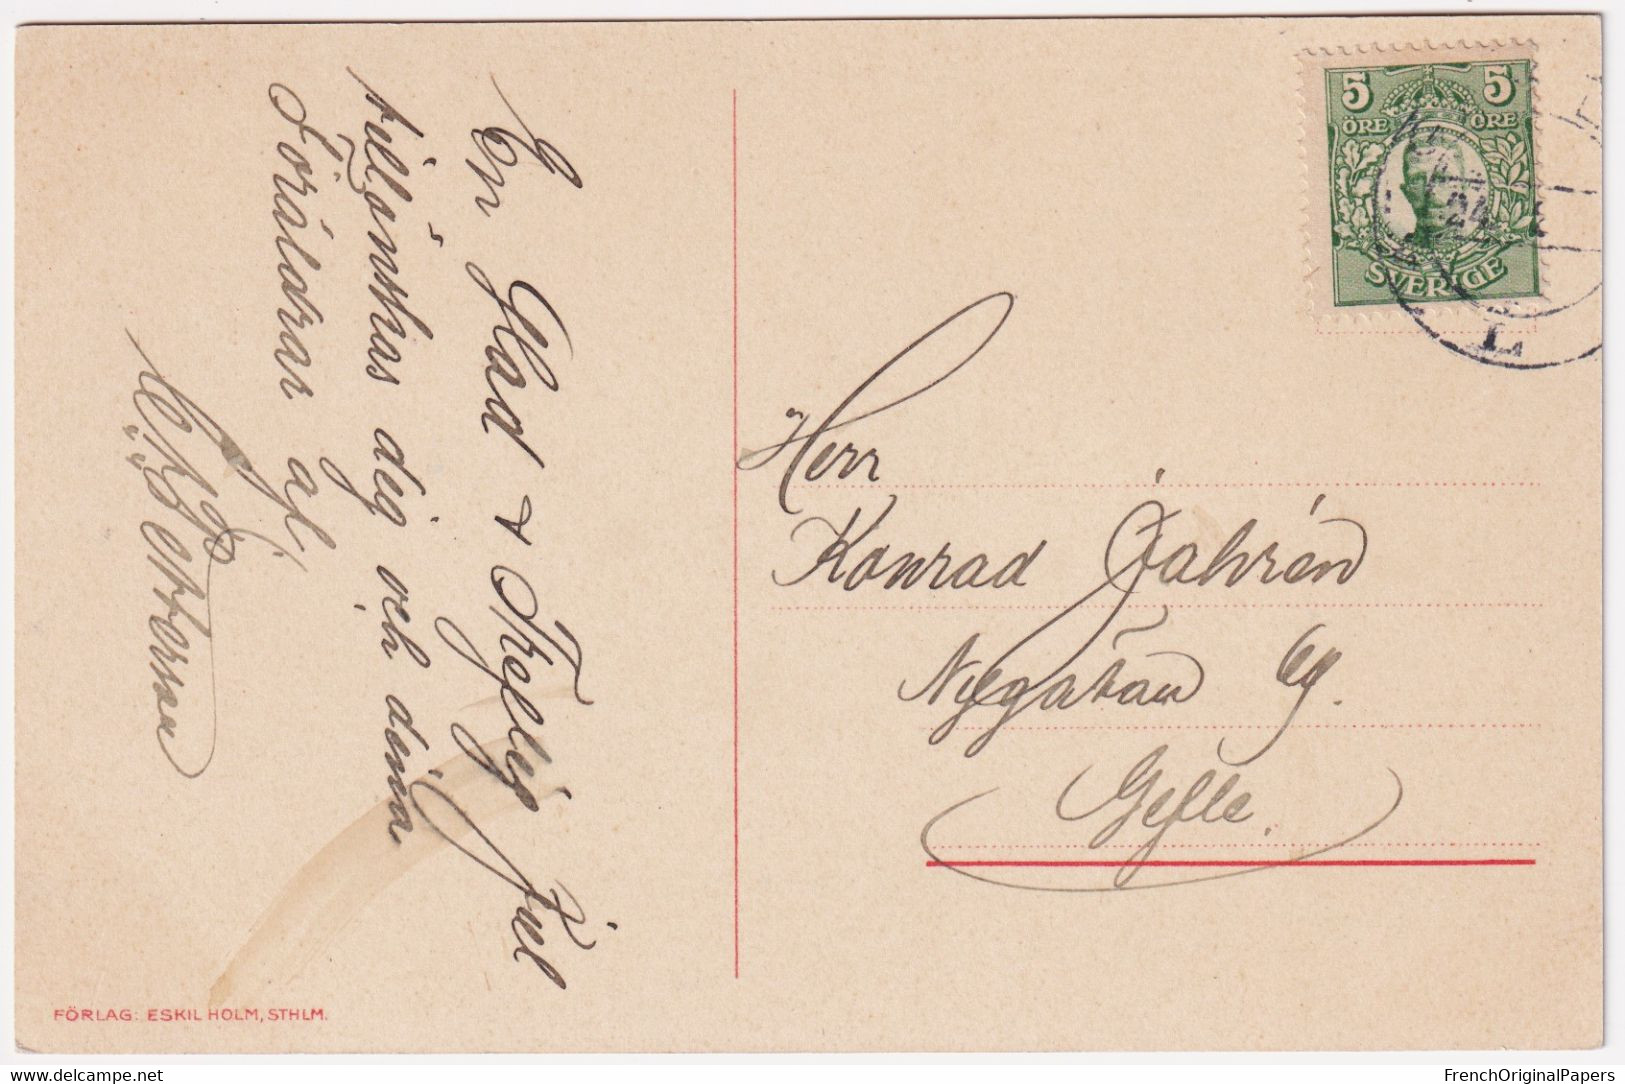 En Glad & Treflig Jul
tillönskas dig och dina
Föräldrar af
Pettersson
Herr
Konrad Jahrén
Nygatan 69.
Gefle.
5 5
ÖRE ÖRE
SVERIGE
24
L.
FÖRLAG: ESKIL HOLM, STHLM.
delcampe.net
FrenchOriginalPapers